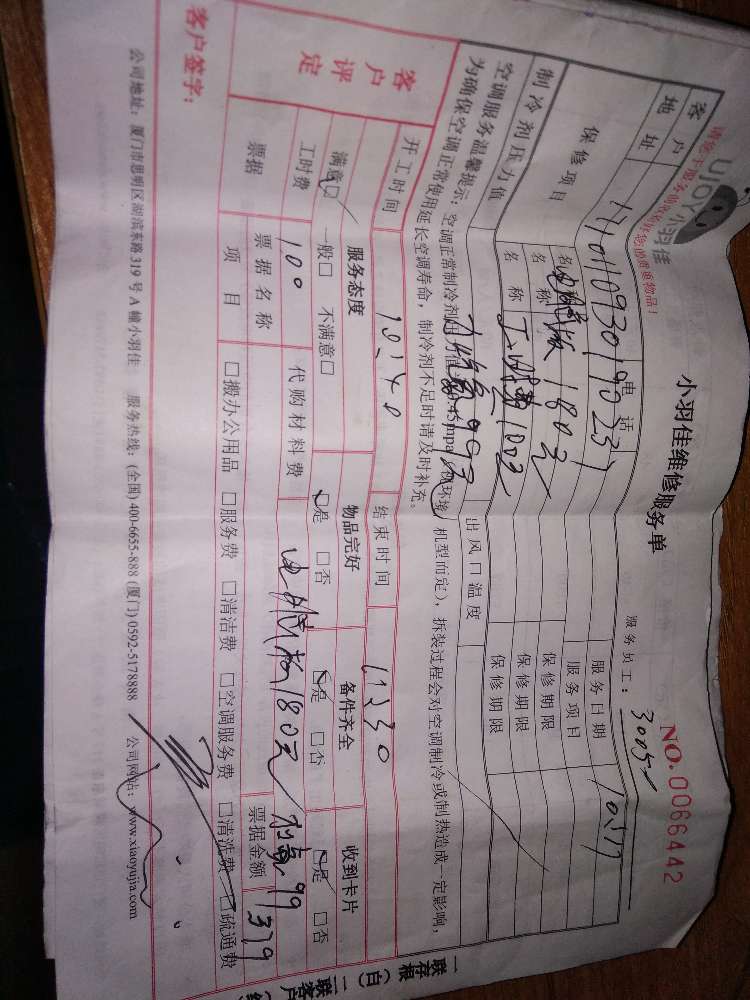 UJOY小羽佳
小羽佳维修服务单
NO.0066442
服务员工：
客户地址
电话
服务日期
保修项目
名称
电脑板 180元
保修期限
服务项目
名称
工时费100元
保修期限
制冷剂压力值
加氟99元
出风口温度
保修期限
空调服务温馨提示：空调正常制冷剂压力值
0.45mpa
机型而定），拆装过程会对空调制冷或制热造成一定影响，
为确保空调正常使用延长空调寿命，制冷剂不足时请及时补充。
客户评定
开工时间
10:40
结束时间
11:30
服务态度
物品完好
备件齐全
收到卡片
满意□ 一般□ 不满意□
□是 □否
□是 □否
□是 □否
工时费
100
代购材料费
电脑板180元 加氟99
票据
票据名称
票据金额
379
项目
□搬办公用品 □服务费 □清洁费 □空调服务费 □清洗费 □疏通费
客户签字：
公司地址：厦门市思明区湖滨东路319号A幢小羽佳 服务热线：(全国) 400-6655-888 (厦门) 0592-5178888 公司网站：www.xiaoyujia.com
一联存根（白）二联客户